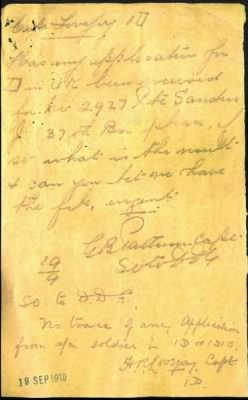 Capt Lovejoy 1D
Has any application for
D in UK been received
for No 2927 Pte Sanders
J. 37th Bn please, if
so what is the result
& can you let me have
the file, urgent
Capt
19/9
SO to DDG
SO to D.D.G.
No trace of any Application
from a/n soldier in 1D or 1D10.
Lovejoy Capt
1D.
19 SEP 1919